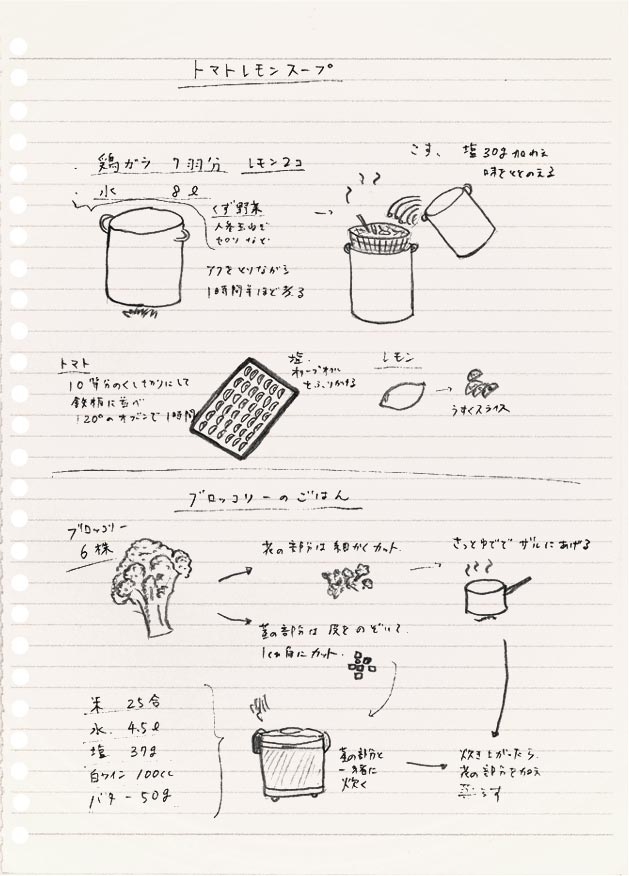 トマトレモンスープ
鶏ガラ 7羽分 レモン2コ
水 8ℓ
くず野菜
人参玉ねぎ
セロリなど
アクをとりながら
1時間半ほど煮る
こす、塩30g加わえ
味をととのえる
トマト
10等分のくし切りにして
鉄板に並べ
120°のオーブンで1時間
塩、
オリーブオイル
をふりかける
レモン
うすくスライス
ブロッコリーのごはん
ブロッコリー
6株
花の部分は細かくカット、
さっとゆでてザルにあげる
茎の部分は皮をのぞいて、
1cm角にカット、
米 25合
水 4.5ℓ
塩 37g
白ワイン 100cc
バター 50g
茎の部分と
一緒に
炊く
炊き上がったら、
花の部分を加え